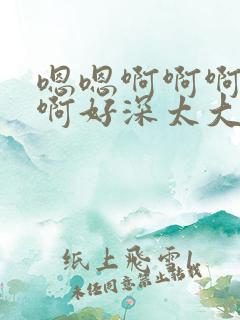 嗯嗯啊啊啊
啊好深太大
纸上飛雪
未经同意禁止转载